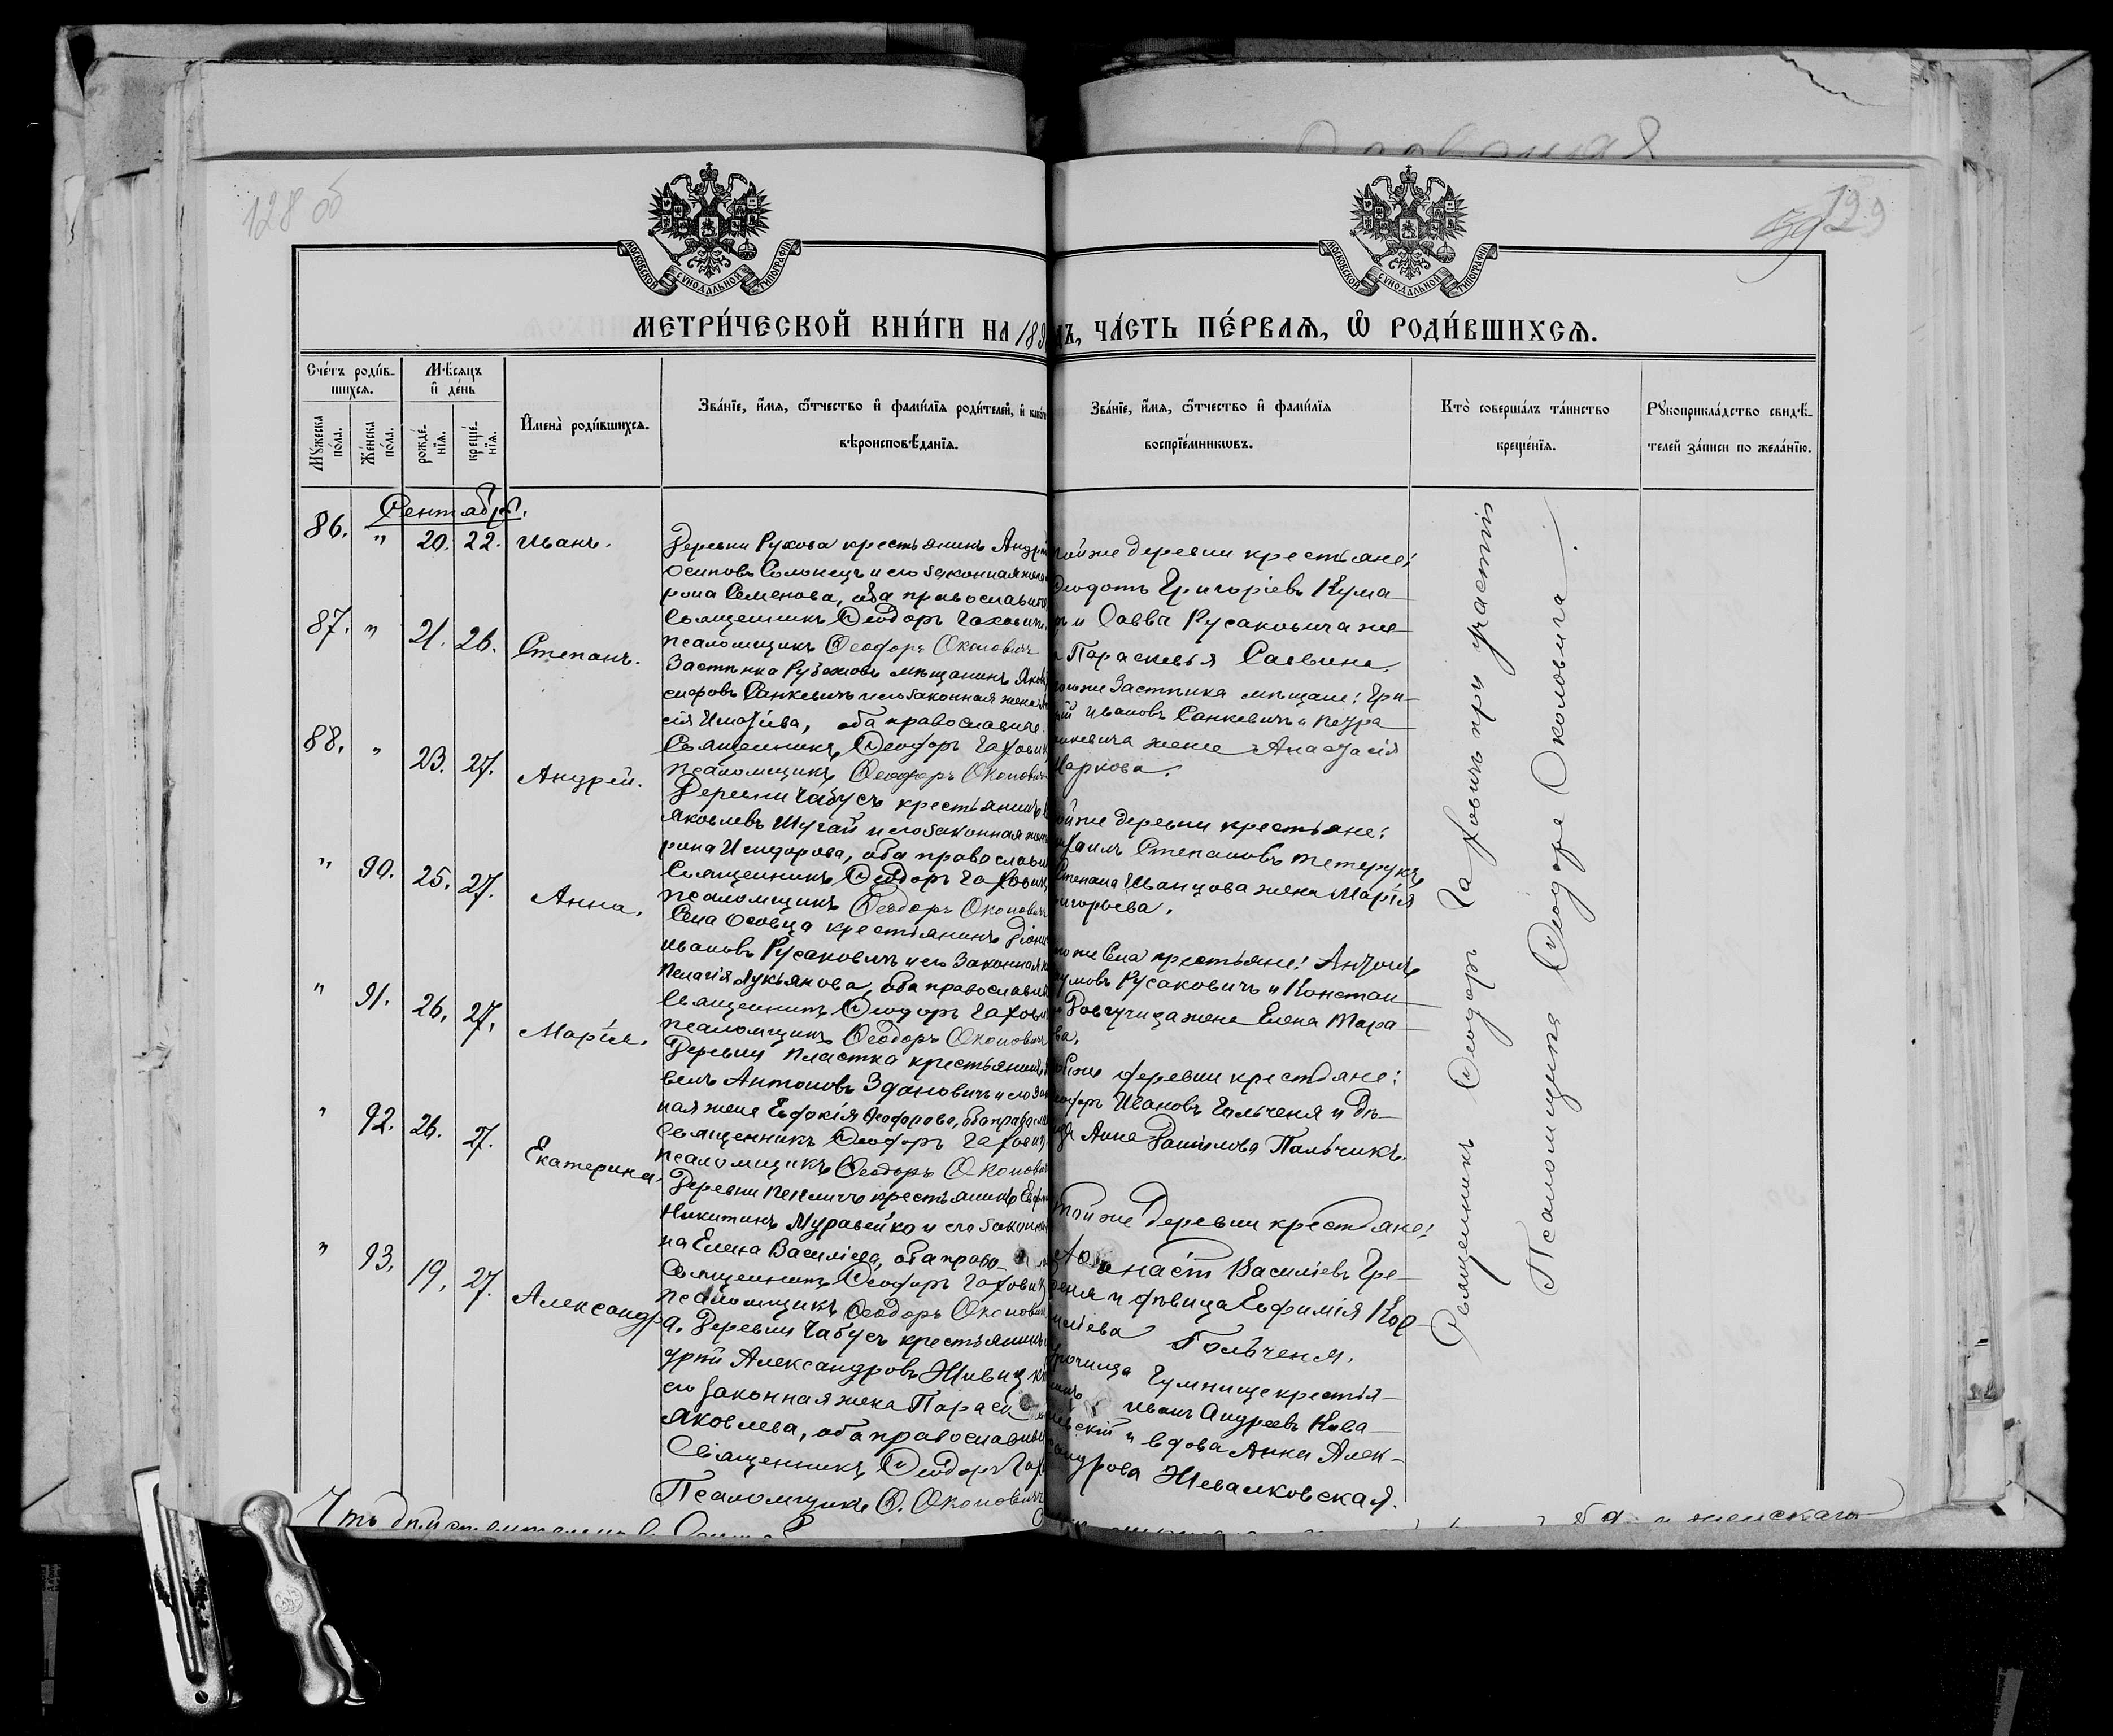 128 об
129
МОСКОВСКОЙ СѴНОДАЛЬНОЙ ТИПОГРАФІИ
МОСКОВСКОЙ СѴНОДАЛЬНОЙ ТИПОГРАФІИ
МЕТРИ́ЧЕСКОЙ КНИ́ГИ НА 189
ДЪ, ЧА́СТЬ ПЕ́РВАѦ, Ѽ РОДИ́ВШИХСѦ.
Сче́тъ роди́в-
шихсѧ.
Мѣ́сяцъ
и҆ де́нь
Мꙋ́жеска
по́ла.
Же́нска
по́ла.
рожде́-
нїѧ.
креще́-
нїѧ.
И҆мена̀ роди́вшихсѧ.
Зва́нїе, и҆́мѧ, ѻ҆́тчество и҆ фами́лїѧ роди́телей, и҆ како́г
вѣроисповѣ́данїѧ.
Зва́нїе, и҆́мѧ, ѻ҆́тчество и҆ фами́лїѧ
воспрїе́мникѡвъ.
Кто̀ соверша́лъ та́инство
креще́нїѧ.
Рꙋкоприкла́дство свидѣ́-
телей за́писи по жела́нїю.
Сентябрь.
86. " 20. 22. Иванъ.
Деревни Рухова крестьянинъ Андрей
Осиповъ Солонецъ и его законная жена
рина Семенова, оба православные
Священникъ Ѳеодоръ Гахович
Псаломщикъ Ѳеодоръ Околович
той же деревни крестьяне:
Ѳеодотъ Григоріевъ Кума-
и Савва Русаковича же-
Параскевія Саввина.
87. " 21. 26. Степанъ.
Застѣнка мѣщанинъ Яков
сифовъ Санкевичъ и его законная жена
сія Игнатіева, оба православные.
Священникъ Ѳеодоръ Гахович
Псаломщикъ Ѳеодоръ Околович
тогоже Застѣнка мѣщане: Гри-
рій Ивановъ Санкевичъ и Петра
нкевича жена Анастасія
Маркова.
88. " 23. 27. Андрей.
Деревни Чабусъ крестьянинъ
Яковлевъ Шугай и его законная жен
рина Исидорова, оба православн
Священникъ Ѳеодоръ Гахович
Псаломщикъ Ѳеодоръ Околович
той же деревни крестьяне:
ихаилъ Степановъ Тетерукъ
Степана Иванцова жена Марія
игорьева.
" 90. 25. 27. Анна.
Села Осовца крестьянинъ Діони
Ивановъ Русаковичъ и его законная
Пелагія Лукьянова, оба православн
Священникъ Ѳеодоръ Гахович
Псаломщикъ Ѳеодоръ Околович
тогоже Села крестьяне: Антонъ
умовъ Русаковичъ и Констан-
Довгучица жена Елена Мара-
ва.
" 91. 26. 27. Марія.
Деревни Пластка крестьянинъ
велъ Антоновъ Здановичъ и его зак
ная жена Евдокія Ѳеодорова, оба правосл
Священникъ Ѳеодоръ Гахович
Псаломщикъ Ѳеодоръ Околович
той же деревни крестьяне:
Ивановъ Гольченя и дѣ-
ица Анна Данилова Пальчикъ.
" 92. 26. 27. Екатерина.
Деревни крестьянинъ
Никитинъ Муравейко и его законн
на Елена Василіева, оба право-
Священникъ Ѳеодоръ Гахович
Псаломщикъ Ѳеодоръ Околович
той же деревни крестьяне:
Аѳанасій Василіевъ Гре-
беня и дѣвица Евфимія Кор-
иліева Гольченя.
" 93. 19. 27. Александра.
Деревни Чабусъ крестьянинъ
дрей Александровъ Живиц
его законная жена Параск
Яковлева, оба православны
Священникъ Ѳеодоръ Гах
Псаломщикъ Ѳ. Околович
Урочища Гумнище крестья-
нинъ Иванъ Андреевъ Кова-
левскій и вдова Анна Алек-
сандрова Жевалковская.
Священникъ Ѳеодоръ Гаховичъ при участіи
Псаломщика Ѳеодора Околовича.
женскаго